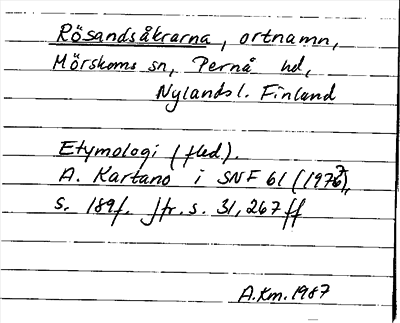 Rösandsåkrarna, ortnamn,
Mörskoms sn, Pernå hd,
Nylands l. Finland
Etymologi (fled).
A. Kartano i SNF 61 (1973),
s. 189f. Jfr. s. 31, 267 ff
A.Km. 1987